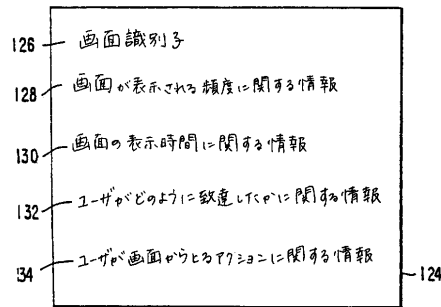 126 画面識別子
128 画面が表示される頻度に関する情報
130 画面の表示時間に関する情報
132 ユーザがどのように致達したかに関する情報
134 ユーザが画面からとるアクションに関する情報
124